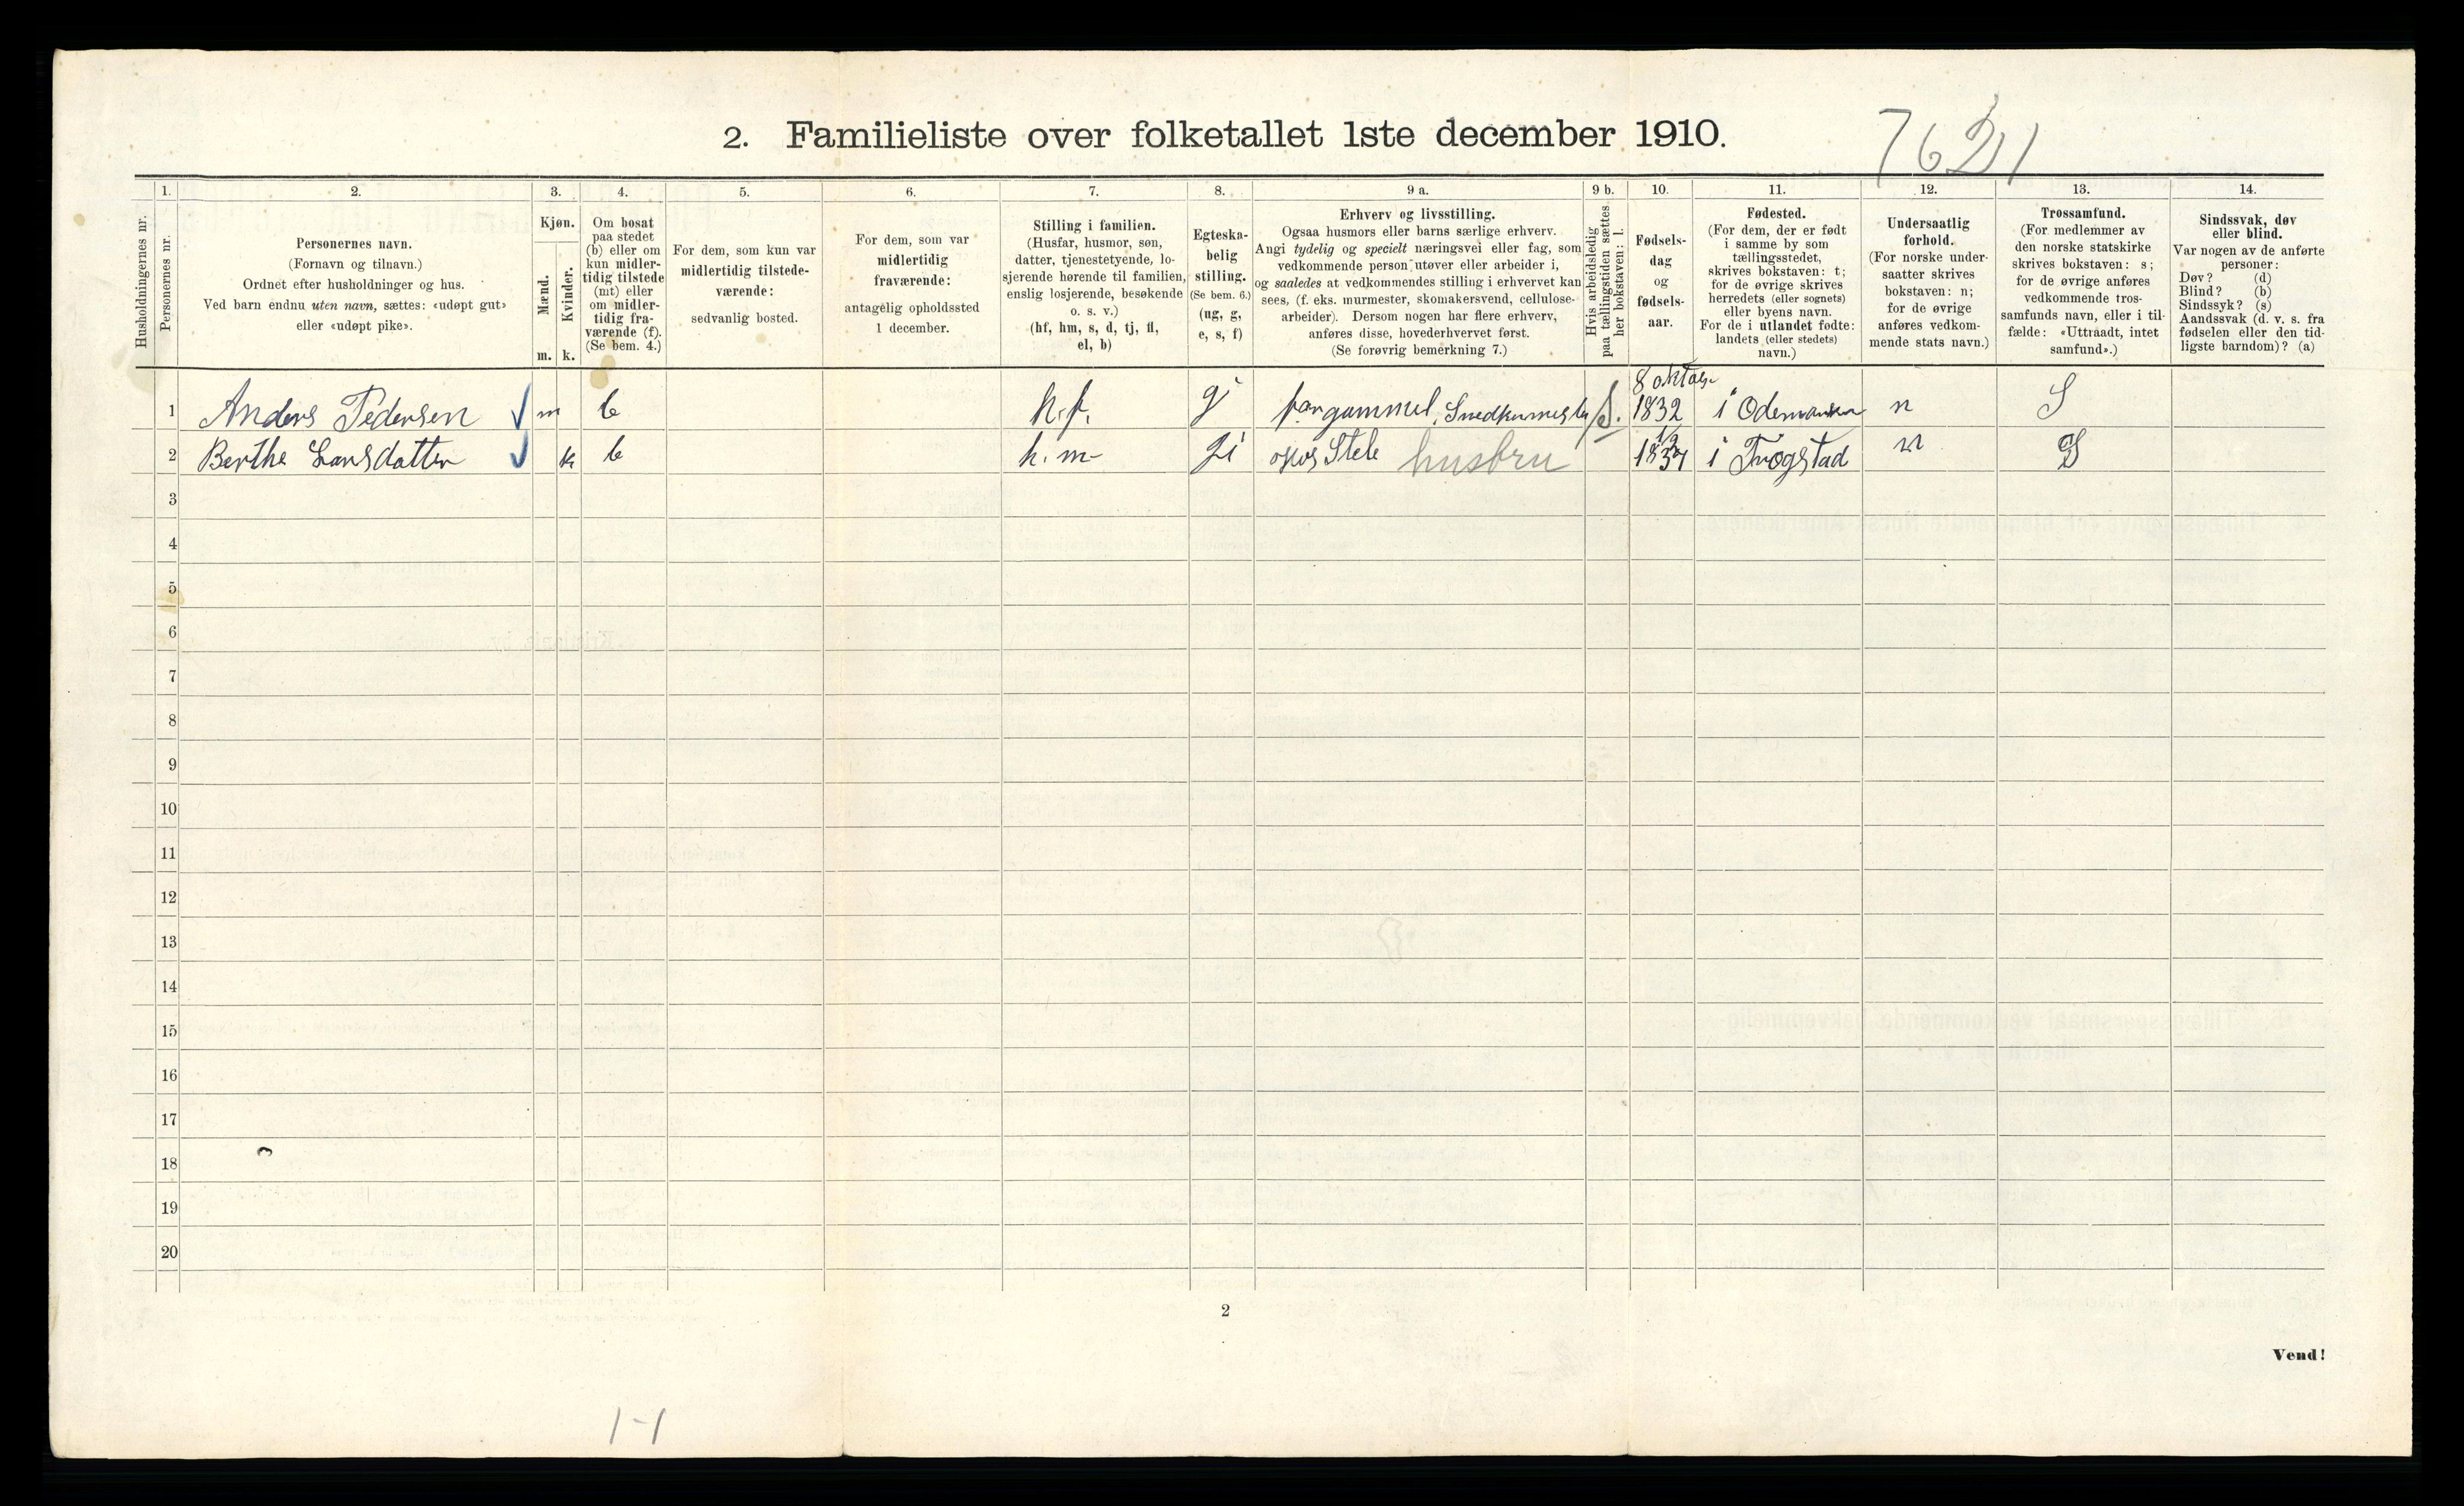 2. Familieliste over folketallet 1ste december 1910.
7621
Husholdningernes nr.
1.
Personernes nr.
2.
Personernes navn.
(Fornavn og tilnavn.)
Ordnet efter husholdninger og hus.
Ved barn endnu uten navn, sættes: «udøpt gut»
eller «udøpt pike».
3.
Kjøn.
Mænd.
Kvinder.
m. k.
4.
Om bosat
paa stedet
(b) eller om
kun midler-
tidig tilstede
(mt) eller
om midler-
tidig fra-
værende (f).
(Se bem. 4.)
5.
For dem, som kun var
midlertidig tilstede-
værende:
sedvanlig bosted.
6.
For dem, som var
midlertidig
fraværende:
antagelig opholdssted
1 december.
7.
Stilling i familien.
(Husfar, husmor, søn,
datter, tjenestetyende, lo-
sjerende hørende til familien,
enslig losjerende, besøkende
o. s. v.)
(hf, hm, s, d, tj, fl,
el, b)
8.
Egteska-
belig
stilling.
(Se bem. 6.)
(ug, g,
e, s, f)
9 a.
Erhverv og livsstilling.
Ogsaa husmors eller barns særlige erhverv.
Angi tydelig og specielt næringsvei eller fag, som
vedkommende person utøver eller arbeider i,
og saaledes at vedkommendes stilling i erhvervet kan
sees, (f. eks. murmester, skomakersvend, cellulose-
arbeider). Dersom nogen har flere erhverv,
anføres disse, hovederhvervet først.
(Se forøvrig bemerkning 7.)
9 b.
Hvis arbeidsledig
paa tællingstiden sættes
her bokstaven: l.
10.
Fødsels-
dag
og
fødsels-
aar.
11.
Fødested.
(For dem, der er født
i samme by som
tællingsstedet,
skrives bokstaven: t;
for de øvrige skrives
herredets (eller sognets)
eller byens navn.
For de i utlandet fødte:
landets (eller stedets)
navn.)
12.
Undersaatlig
forhold.
(For norske under-
saatter skrives
bokstaven: n;
for de øvrige
anføres vedkom-
mende stats navn.)
13.
Trossamfund.
(For medlemmer av
den norske statskirke
skrives bokstaven: s;
for de øvrige anføres
vedkommende tros-
samfunds navn, eller i til-
fælde: «Uttraadt, intet
samfund».)
14.
Sindssvak, døv
eller blind.
Var nogen av de anførte
personer:
Døv? (d)
Blind? (b)
Sindssyk? (s)
Aandssvak (d. v. s. fra
fødselen eller den tid-
ligste barndom)? (a)
8 oktober
1 Anders Pedersen m b h.f. gi forgammel Snedkermester 1832 i Odemarken n S
2 Berthe Larsdatter k b h.m gi husbru i Trøgstad n S
3
4
5
6
7
8
9
10
11
12
13
14
15
16
17
18
19
20
2
Vend!
1-1